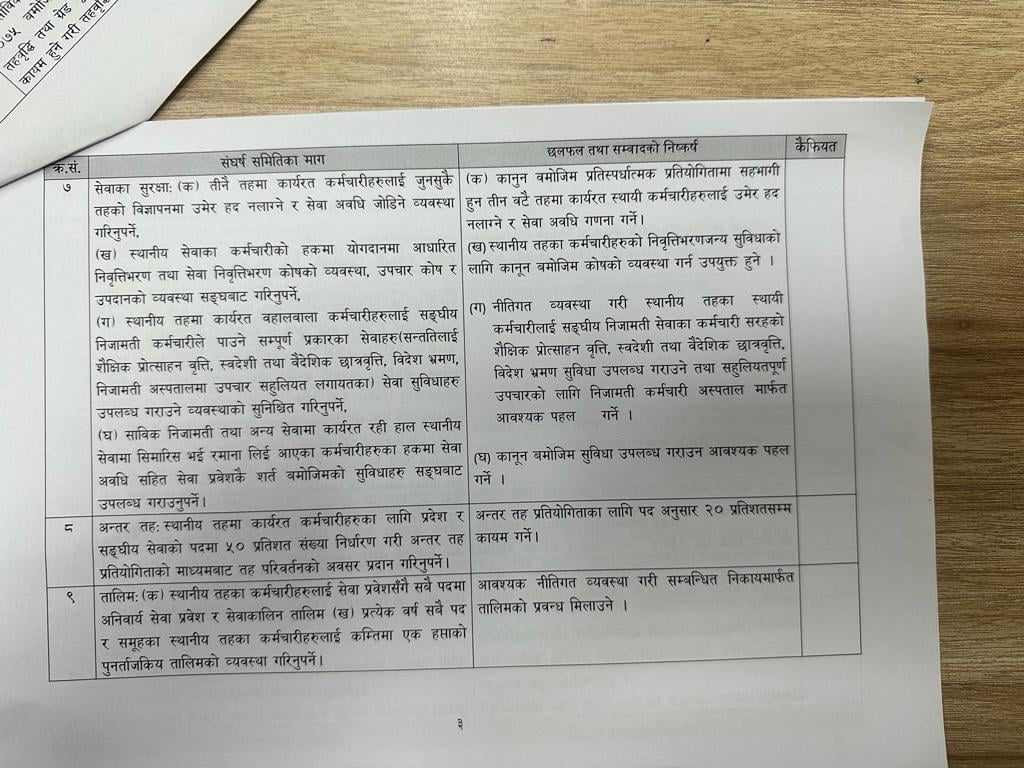 ०७५ वमोजि
तहवृद्धि तथा ग्रेड
कायम हुने गरी तहवृद्धि
क्र.सं.
संघर्ष समितिका माग
छलफल तथा सम्वादको निष्कर्ष
कैफियत
७
सेवाका सुरक्षा: (क) तीनै तहमा कार्यरत कर्मचारीहरुलाई जुनसुकै
तहको विज्ञापनमा उमेर हद नलाग्ने र सेवा अवधि जोडिने व्यवस्था
गरिनुपर्ने,
(ख) स्थानीय सेवाका कर्मचारीको हकमा योगदानमा आधारित
निवृत्तिभरण तथा सेवा निवृत्तिभरण कोषको व्यवस्था, उपचार कोष र
उपदानको व्यवस्था सङ्घबाट गरिनुपर्ने,
(ग) स्थानीय तहमा कार्यरत वहालवाला कर्मचारीहरुलाई सङ्घीय
निजामती कर्मचारीले पाउने सम्पूर्ण प्रकारका सेवाहरु(सन्ततिलाई
शैक्षिक प्रोत्साहन वृत्ति, स्वदेशी तथा बैदेशिक छात्रवृत्ति, विदेश भ्रमण,
निजामती अस्पतालमा उपचार सहुलियत लगायतका) सेवा सुविधाहरु
उपलब्ध गराउने व्यवस्थाको सुनिश्चित गरिनुपर्ने,
(घ) साविक निजामती तथा अन्य सेवामा कार्यरत रही हाल स्थानीय
सेवामा सिमारिस भई रमाना लिई आएका कर्मचारीहरुका हकमा सेवा
अवधि सहित सेवा प्रवेशकै शर्त बमोजिमको सुविधाहरु सङ्घबाट
उपलब्ध गराउनुपर्ने।
(क) कानुन वमोजिम प्रतिस्पर्धात्मक प्रतियोगितामा सहभागी
हुन तीन वटै तहमा कार्यरत स्थायी कर्मचारीहरुलाई उमेर हद
नलाग्ने र सेवा अवधि गणना गर्ने।
(ख) स्थानीय तहका कर्मचारीहरुको निवृत्तिभरणजन्य सुविधाको
लागि कानून बमोजिम कोषको व्यवस्था गर्न उपयुक्त हुने ।
(ग) नीतिगत व्यवस्था गरी स्थानीय तहका स्थायी
कर्मचारीलाई सङ्घीय निजामती सेवाका कर्मचारी सरहको
शैक्षिक प्रोत्साहन वृत्ति, स्वदेशी तथा बैदेशिक छात्रवृत्ति,
विदेश भ्रमण सुविधा उपलब्ध गराउने तथा सहुलियतपूर्ण
उपचारको लागि निजामती कर्मचारी अस्पताल मार्फत
आवश्यक पहल गर्ने ।
(घ) कानून बमोजिम सुविधा उपलब्ध गराउन आवश्यक पहल
गर्ने ।
८
अन्तर तह: स्थानीय तहमा कार्यरत कर्मचारीहरुका लागि प्रदेश र
सङ्घीय सेवाको पदमा ५० प्रतिशत संख्या निर्धारण गरी अन्तर तह
प्रतियोगिताको माध्यमबाट तह परिवर्तनको अवसर प्रदान गरिनुपर्ने।
अन्तर तह प्रतियोगिताका लागि पद अनुसार २० प्रतिशतसम्म
कायम गर्ने।
९
तालिम: (क) स्थानीय तहका कर्मचारीहरुलाई सेवा प्रवेशसँगै सवै पदमा
अनिवार्य सेवा प्रवेश र सेवाकालिन तालिम (ख) प्रत्येक वर्ष सवै पद
र समूहका स्थानीय तहका कर्मचारीहरुलाई कम्तिमा एक हप्ताको
पुनर्ताजकिय तालिमको व्यवस्था गरिनुपर्ने।
आवश्यक नीतिगत व्यवस्था गरी सम्बन्धित निकायमार्फत
तालिमको प्रवन्ध मिलाउने ।
३